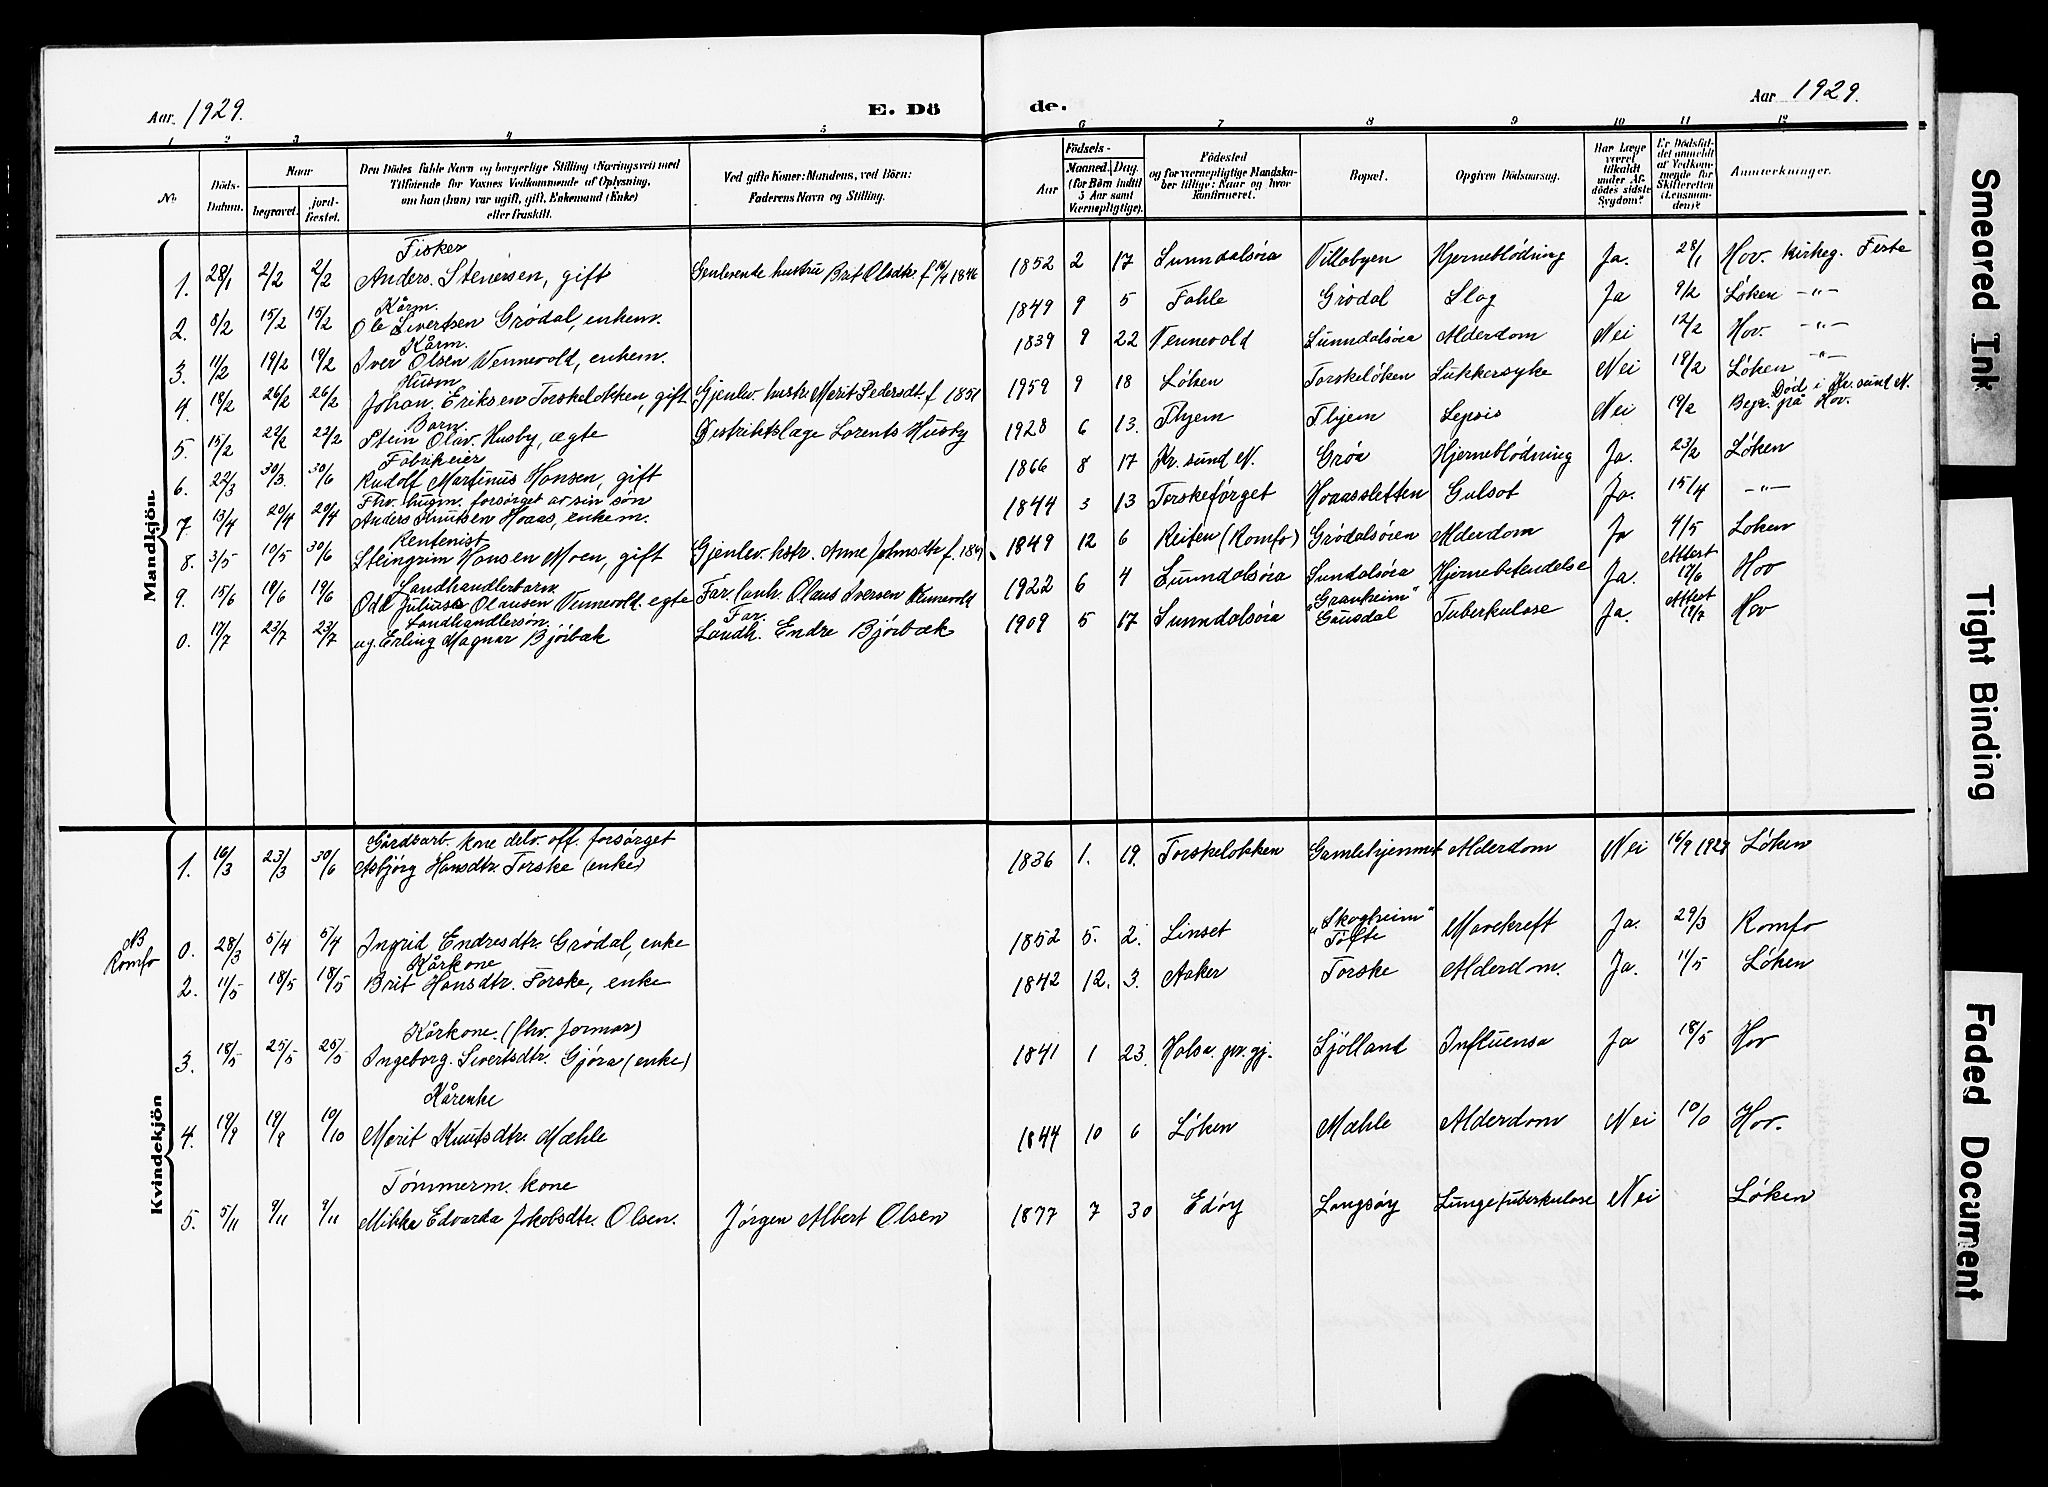 Aar 1929.
E. Döde.
Aar 1929.
1 2 3 4 5 6 7 8 9 10 11 12
No.
Döds-Datum.
Naar
begravet.
jordfæstet.
Den Dödes fulde Navn og borgerlige Stilling (Næringsvei) med
Tilföiende for Voxnes Vedkommende af Oplysning,
om han (hun) var ugift, gift, Enkemand (Enke)
eller fraskilt.
Ved gifte Koner: Mandens, ved Börn:
Faderens Navn og Stilling.
Födsels-
Aar
Maaned. Dag.
(for Børn indtil
5 Aar samt
Værnepligtige).
Födested
og for værnepligtige Mandska-
ber tillige: Naar og hvor
konfirmeret.
Bopæl.
Opgiven Dödsaarsag.
Har Læge
været
tilkaldt
under Af-
dödes sidste
Sygdom?
Er Dödsfal-
det anmeldt
af Vedkom-
mende for
Skifteretten
(Lensman-
den)?
Anmærkninger.
Mandkjön.
Fisker
1. 28/1 2/2 2/2 Anders Stenersen, gift Genlevende hustru Brit Olsdtr. f 16/4 1846 1852 2 17 Sunndalsöra Villabyen Hjerneblödning Ja. 28/1 Hov. Kirkeg. Feste
Kårm.
2. 8/2 15/2 15/2 Ole Sivertsen Grödal, enkem. 1849 9 5 Fahle Grödal Slag Ja 9/2 Löken -"-
Kårm.
3. 11/2 19/2 19/2 Iver Olsen Vennevold, enkem. 1839 9 22 Vennevold Sunndalsöra Alderdom Nei 12/2 Hov. -"-
Husm
4. 18/2 26/2 26/2 Johan Eriksen Torskelökken, gift Gjenlev. hustr. Merit Pedersdt. f 1851 1959 9 18 Löken Torskelöken Sukkersyke Nei 19/2 Löken -"-
Barn.
5. 15/2 22/2 22/2 Stein Olav Husby, ægte Distriktslæge Lorents Husby 1928 6 13. Flyem Flyem Sepsis Nei 19/2 Död i Kr. sund N. Begr. på Hov.
Fabrikeier
6. 22/3 30/3 30/6 Rudolf Martinus Hansen, gift 1866 8 17 Kr. sund N. Gröa Hjerneblödning Ja. 23/2 Löken
Fhv. husm. forsörget av sin sön
7. 13/4 20/4 20/4 Anders Knutsen Hoaas, enkem. 1844 3 13 Torskefarget Hoaassletten Gulsot Ja. 15/4 -"-
Rentenist
8. 3/5 10/5 30/6 Steingrim Hansen Moen, gift Gjenlev. hstr. Anne Johnsdtr f. 1849 12 6 Reiten (Romfo) Grödalsöien Alderdom Ja 4/5 Loken
Landhandlerbarn.
9. 15/6 19/6 19/6 Odd Julius Olausen Vennevold. egte Far. lanh. Olaus Iversen Vennevold 1922 6 4 Sunndalsöra Sundalsöra Hjernebetendelse Ja. Attest 17/6 Hov
Landhandlersön.
0. 17/7 23/7 23/7 ug. Erling Magnar Bjöibak Far. Landh. Endre Bjöibæk 1909 5 17 Sunndalsöra "Granheim" Gausdal Tuberkulose Ja. Attest 19/7 Hov
Kvindekjön
Gårdsarb. kone delv. off. forsörget
1. 16/3 23/3 30/6 Asbjörg Hansdtr. Torske (enke) 1836 1. 19. Torskelokken Gamlehjemmet Alderdom Nei 16/9 1929 Löken
NB Romfo
0. 28/3 5/4 5/4 Ingrid Endresdtr. Grödal, enke 1852 5. 2. Linset "Skogheim" Tofte Mavekreft Ja. 29/3 Romfo
Kårkone
2. 11/5 18/5 18/5 Brit Hansdtr. Torske, enke 1842 12. 3. Aaker Torske Alderdom. Ja. 11/5 Löken
Kårkone (fhv. jormor)
3. 18/5 25/5 25/5 Ingeborg Sivertsdtr. Gjöra (enke) 1841 1 23. Halsa. pr. gj. Sjölland Influensa Ja 18/5 Hov
Kårenke
4. 19/9 19/9 19/10 Merit Knutsdtr. Mæhle 1844 10 6 Löken Mæhle Alderdom Nei 10/0 Hov.
Tömmerm. kone
5. 5/11 9/11 9/11 Mikka Edvarda Jakobsdtr. Olsen. Jörgen Albert Olsen 1877 7 30 Edöy Langsöy Lungetuberkulose Nei Löken
Smeared Ink
Tight Binding
Faded Document